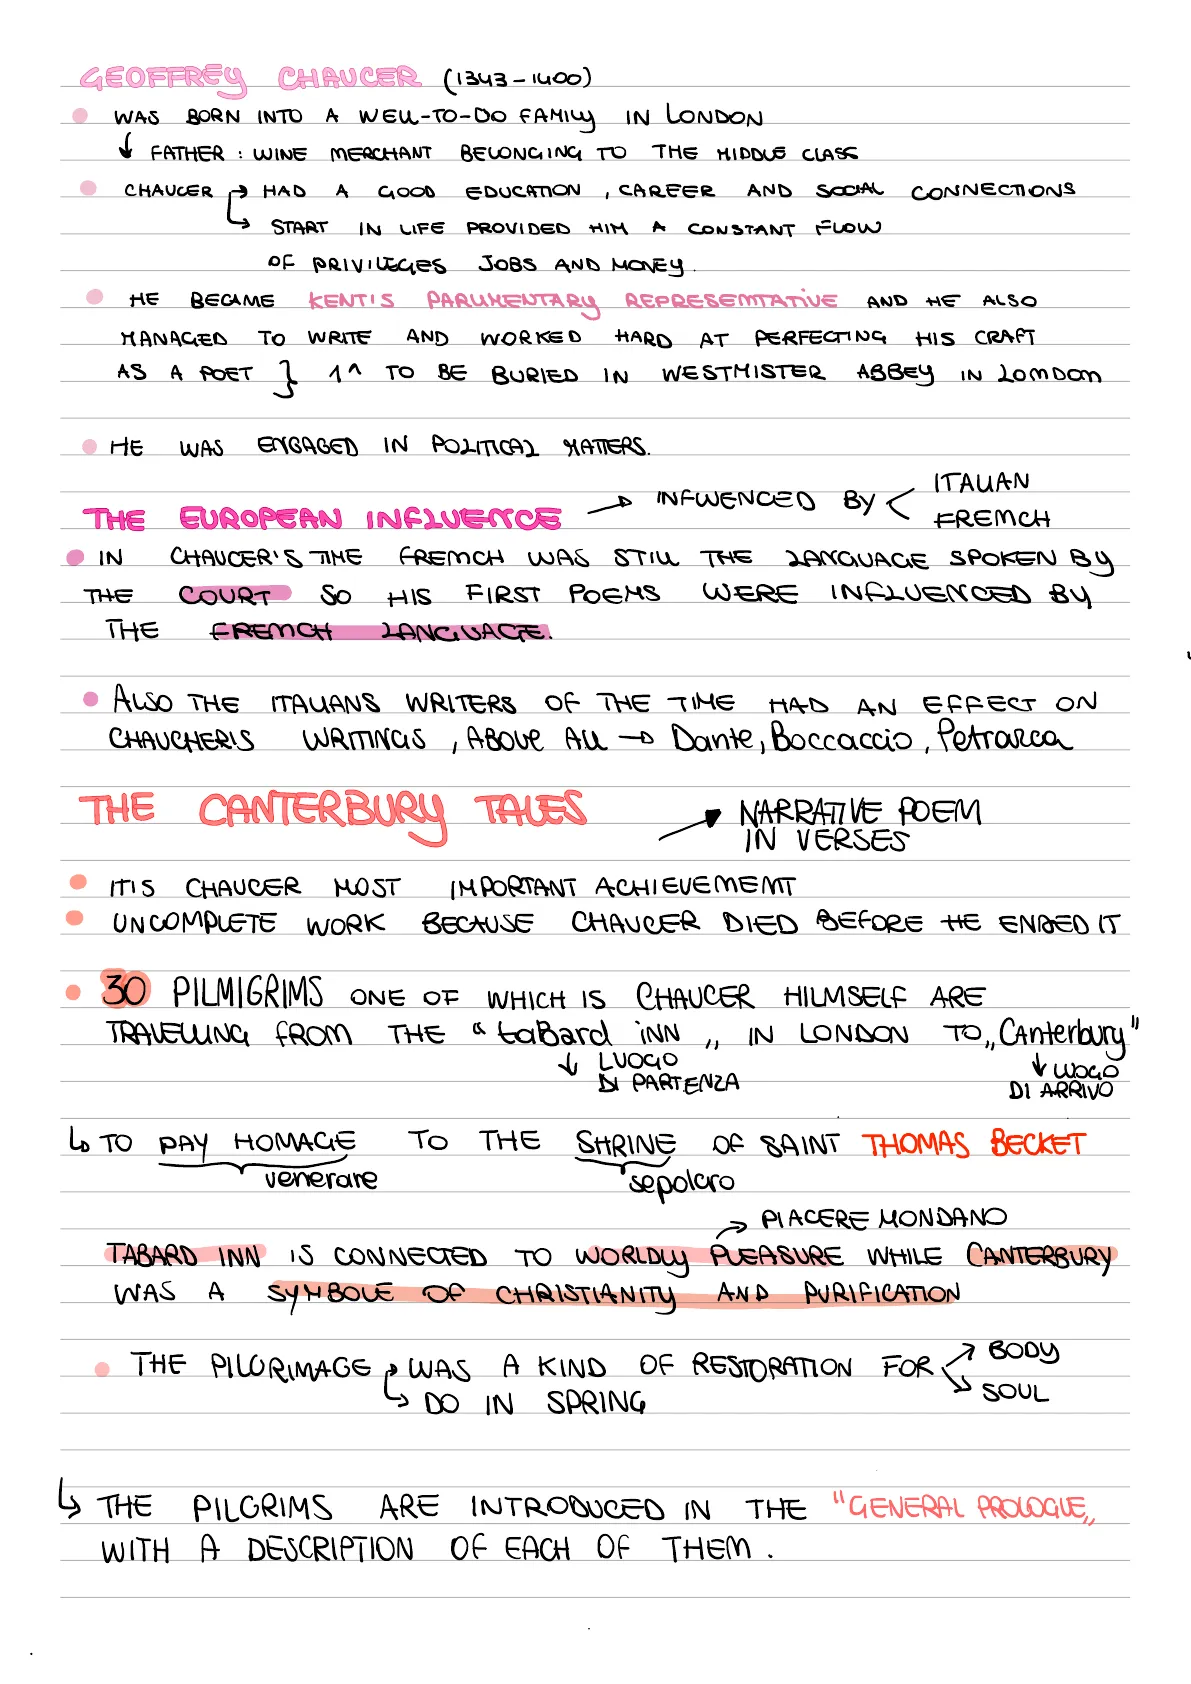 GEOFFREY CHAUCER (1343-1400)
WAS BORN INTO A WELL-TO-DO FAMILY IN LONDON
↓ FATHER: WINE MERCHANT BELONGING TO THE MIDDLE CLASS
CHAUCER → HAD A GOOD EDUCATION, CAREER AND SOCIAL CONNECTIONS
↳ START IN LIFE PROVIDED HIM A CONSTANT FLOW
OF PRIVILEGES JOBS AND MONEY.
HE BECAME KENTIS PARLIMENTARY REPRESENTATIVE AND HE ALSO
MANAGED TO WRITE AND WORKED HARD AT PERFECTING HIS CRAFT
AS A POET } 1^ TO BE BURIED IN WESTMISTER ABBEY IN LONDON
HE WAS ENGAGED IN POLITICAL MATTERS.
THE EUROPEAN INFLUENCE → INFLUENCED BY < ITALIAN
FRENCH
IN CHAUCER'S TIME FRENCH WAS STILL THE LANGUAGE SPOKEN BY
THE COURT SO HIS FIRST POEMS WERE INFLUENCED BY
THE FRENCH LANGUAGE.
ALSO THE ITALIANS WRITERS OF THE TIME HAD AN EFFECT ON
CHAUCHER'S WRITINGS, ABOVE ALL → Dante, Boccaccio, Petrarca
THE CANTERBURY TALES → NARRATIVE POEM
IN VERSES
IT'S CHAUCER MOST IMPORTANT ACHIEVEMENT
UNCOMPLETE WORK BECAUSE CHAUCER DIED BEFORE HE ENDED IT
30 PILMIGRIMS ONE OF WHICH IS CHAUCER HILMSELF ARE
TRAVELLING FROM THE "taBard iNN" IN LONDON TO "CAnterbury"
↓ LUOGO
DI PARTENZA
↓ LUOGO
DI ARRIVO
↳ TO PAY HOMAGE TO THE SHRINE OF SAINT THOMAS BECKET
venerare sepolcro
→ PIACERE MONDANO
TABARD INN IS CONNECTED TO WORLDLY PLEASURE WHILE CANTERBURY
WAS A SYMBOLE OF CHRISTIANITY AND PURIFICATION
THE PILGRIMAGE → WAS A KIND OF RESTORATION FOR → BODY
→ SOUL
↳ DO IN SPRING
↳ THE PILGRIMS ARE INTRODUCED IN THE "GENERAL PROLOGUE"
WITH A DESCRIPTION OF EACH OF THEM.